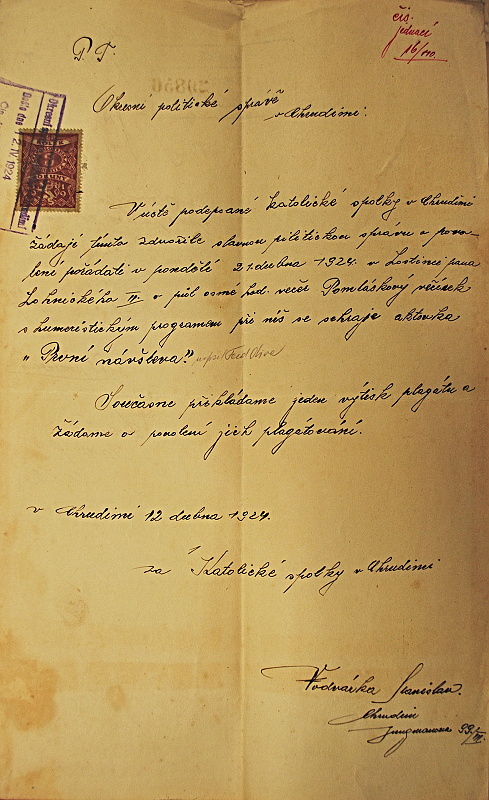 čís.
jednací
16/pro.
P. T.
Okresní politické správě
v Chrudimi.
12 IV 1924
Uctě podepsané katolické spolky v Chrudimi
žádají tímto zdvořile slavnou politickou správu o povo-
lení pořádati v pondělí 21. dubna 1924. v hostinci pana
Lohnického IV. o půl osmé hod. večer Pomláskový věčírek
s humoristickým programem při níž se sehraje aktovka
"První návštěva."
Současne přikládame jeden výtisk plagátu a
žádame o povolení jich plagátování.
v Chrudimi 12 dubna 1924.
za Katolické spolky v Chrudimi
Vodvárka Stanislav.
Chrudim
Jungmanova 99/IV.